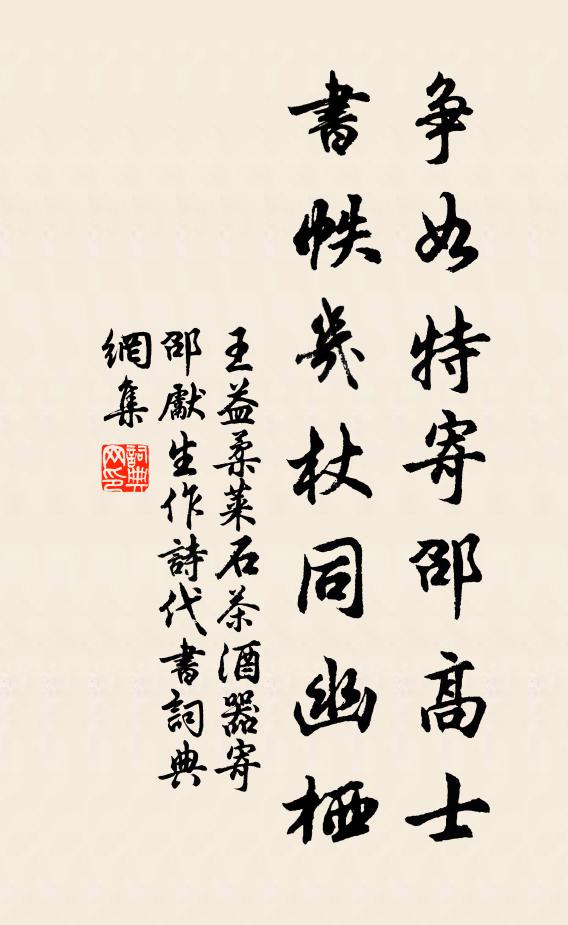 争如特寄邵高士
書帙几杖同幽栖
王益柔萊石茶酒器寄
邵獻生作詩代書詞典
網集
詞典
网印